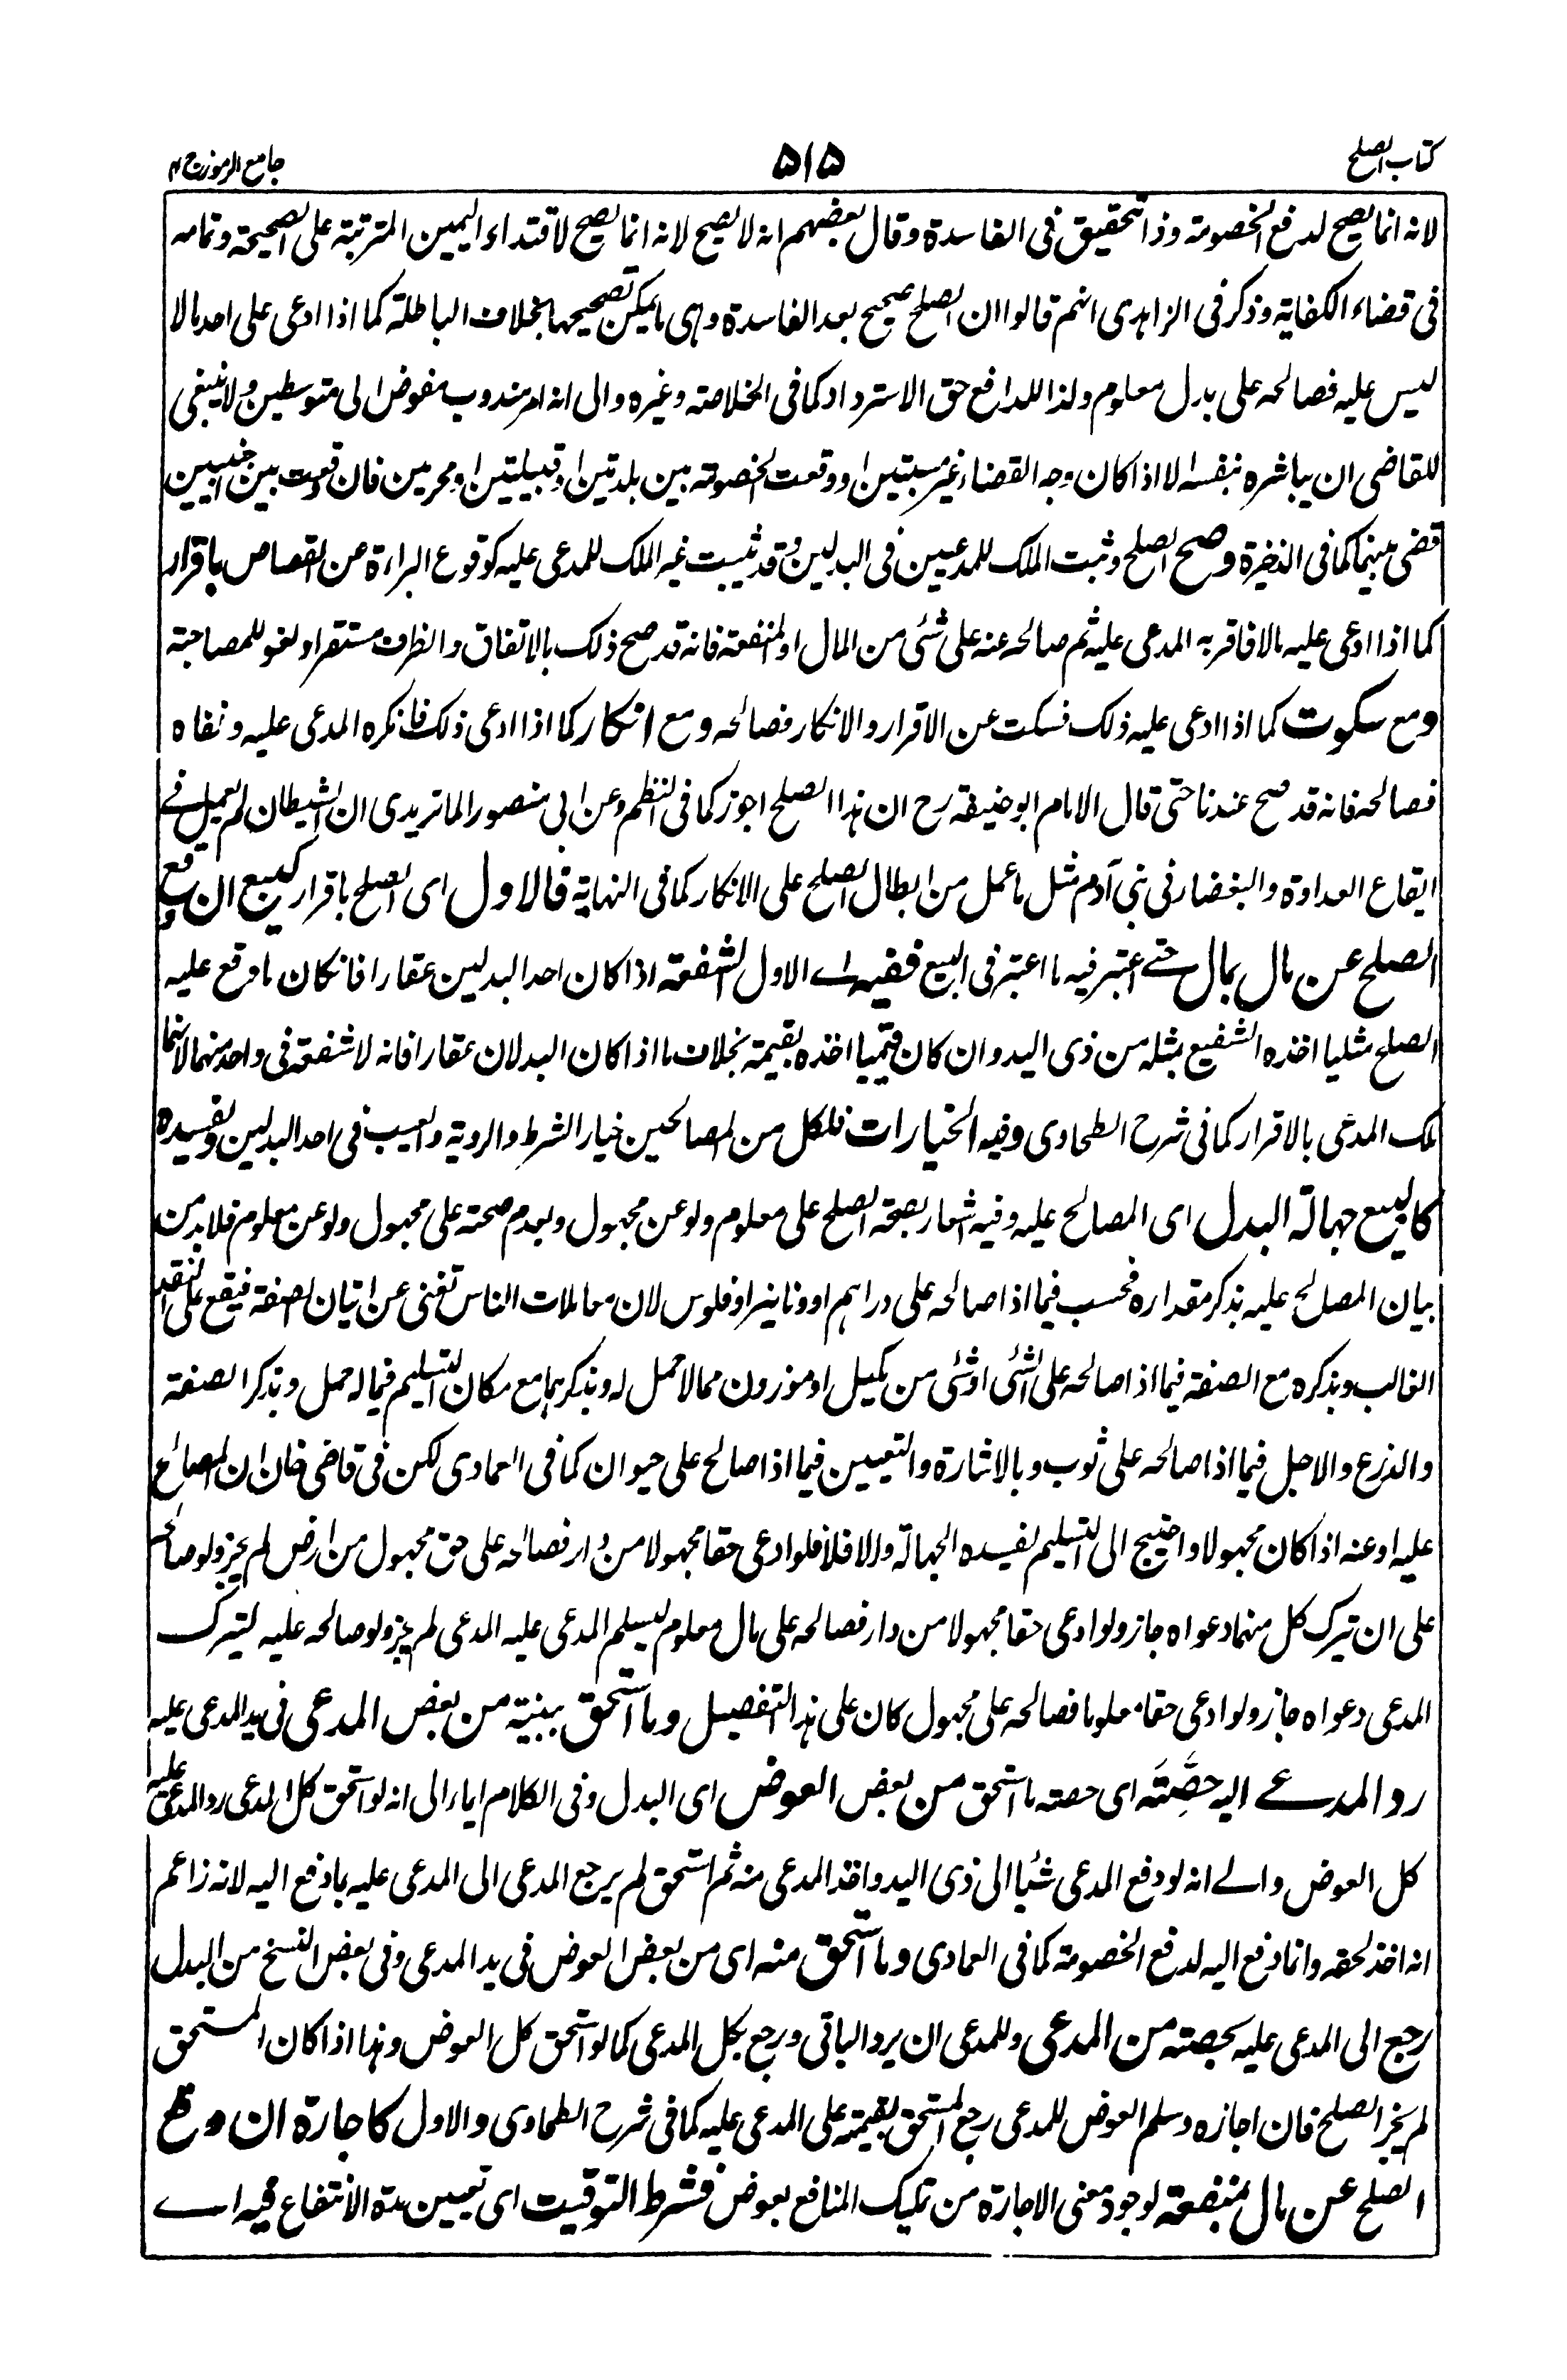 كتاب الصلح ۵۱۵ جامع الرموز ج ۴
لانه انما يصح لدفع الخصومة وذا بتحقيق فى الفاسدة وقال بعضهم انه لا يصح لانه انما يصح لافتداء اليمين المترتبة على الصحيحة وتمامه
فى قضاء الكفاية وذكر فى الزاهدى انهم قالوا ان الصلح صحيح بعد الفاسدة وهى ما يمكن تصحيحها بخلاف الباطلة كما اذا ادعى على احد مالا
ليس عليه فصالحه على بدل معلوم ولذا للدافع حق الاسترداد كما فى الخلاصة وغيره والى انه امر مندوب مفوض الى متوسطين ولا ينبغى
للقاضى ان يباشره بنفسه الا اذا كان وجه القضاء غير مستبين او وقعت الخصومة بين بلدتين او قبيلتين او محرمين فان وقعت بين اجنبيين
قضى بينهما كما فى الذخيرة وصح الصلح وثبت الملك للمدعيين فى البدلين وقد يثبت غير الملك للمدعى عليه كوقوع البراءة من القصاص باقرار
كما اذا ادعى عليه مالا فاقر به المدعى عليه ثم صالحه عنه على شئ من المال او المنفعة فانه قد صح ذلك بالاتفاق والظرف مستقر او لغو للمصاحبة
ومع سكوت كما اذا ادعى عليه ذلك فسكت عن الاقرار والانكار فصالحه ومع انكار كما اذا ادعى ذلك فانكره المدعى عليه ونفاه
فصالحه فانه قد صح عندنا حتى قال الامام ابو حنيفة رح ان هذا الصلح اجوز كما فى النظم وعن ابى منصور الماتريدى ان الشيطان لم يعمل فے
ايقاع العداوة والبغضاء فى بنى آدم مثل ما عمل من ابطال الصلح على الانكار كما فى النهاية فالاول اى الصلح باقرار كبيع ان وقع
الصلح عن مال بمال حتے اعتبر فيه ما اعتبر فى البيع ففيه اے الاول الشفعة اذا كان احد البدلين عقارا فان كان ما وقع عليه
الصلح مثليا اخذه الشفيع بمثله من ذى اليد وان كان قيميا اخذه بقيمته بخلاف ما اذا كان البدلان عقارا فانه لا شفعة فى واحد منهما لانهما
ملك المدعى بالاقرار كما فى شرح الطحاوى وفيه الخيارات فلكل من المصالحين خيار الشرط والروية والعيب فى احد البدلين ويفسده
كالبيع جهالة البدل اى المصالح عليه وفيه اشعار بصحة الصلح على معلوم ولو عن مجهول وبعدم صحته على مجهول ولو عن معلوم فلا بد من
بيان المصالح عليه بذكر مقداره فحسب فيما اذا صالحه على دراهم او دنانير او فلوس لان معاملات الناس تغنى عن اتيان الصفة فيقع على النقد
الغالب وبذكره مع الصفة فيما اذا صالحه على شئ من مكيل او موزون مما لا حمل له وبذكرهما مع مكان التسليم فيما له حمل وبذكر الصفة
والذرع والاجل فيما اذا صالحه على ثوب وبالاشارة والتعيين فيما اذا صالح على حيوان كما فى العمادى لكن فى قاضى خان ان المصالح
عليه او عنه اذا كان مجهولا واحتيج الى التسليم يفسده الجهالة والا فلا فلو ادعى حقا مجهولا من دار فصالحه على حق مجهول من ارض لم يجز ولو صالحه
على ان يترك كل منهما دعواه جاز ولو ادعى حقا مجهولا من دار فصالحه على مال معلوم ليسلم المدعى عليه المدعى لم يجز ولو صالحه عليه ليترك
المدعى دعواه جاز ولو ادعى حقا معلوما فصالحه على مجهول كان على هذا التفصيل وما استحق ببينة من بعض المدعى فى يد المدعى عليه
رد المدعے اليه حصته اى حصته ما استحق من بعض العوض اى البدل وفى الكلام ايماء الى انه لو استحق كل المدعى رد المدعى عليه
كل العوض والے انه لو دفع المدعى شيئا الى ذى اليد واخذ المدعى منه ثم استحق لم يرجع المدعى الى المدعى عليه بما دفع اليه لانه زاعم
انه اخذ لحقه وانما دفع اليه لدفع الخصومة كما فى العمادى وما استحق منه اى من بعض العوض فى يد المدعى وفى بعض النسخ من البدل
رجع الى المدعى عليه بحصته من المدعى وللمدعى ان يرد الباقى ورجع بكل المدعى كما لو استحق كل العوض وهذا اذا كان المستحق
لم يجز الصلح فان اجازه وسلم العوض للمدعى رجع المستحق بقيمته على المدعى عليه كما فى شرح الطحاوى والاول كاجارة ان وقع
الصلح عن مال بمنفعة لوجود معنى الاجارة من تمليك المنافع بعوض فشرط التوقيت اى تعيين مدة الانتفاع فيه اے